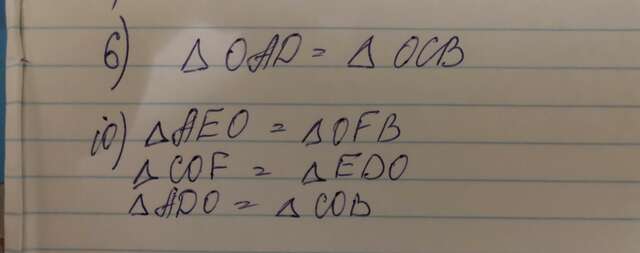 6) △ OAD = △ OCB
10) △AEO = △OFB
△COF = △EDO
△ADO = △COB